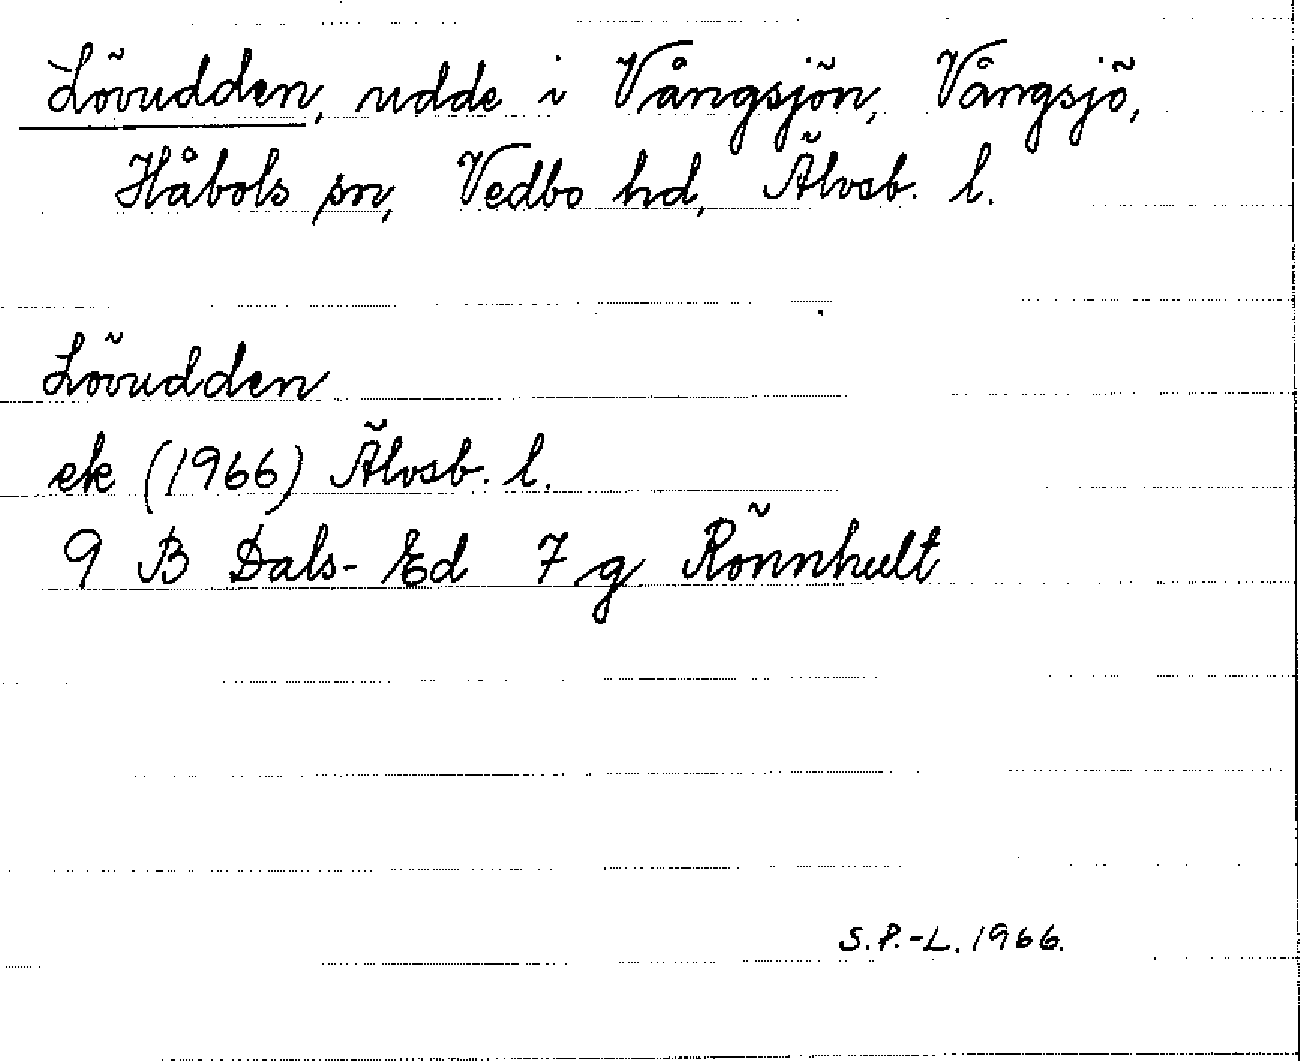 Lövudden, udde i Vångsjön, Vångsjö,
Håbols sn, Vedbo hd, Älvsb. l.
Lövudden
ek (1966) Älvsb. l.
9 B Dals-Ed 7 g Rönnhult
S.P.-L. 1966.